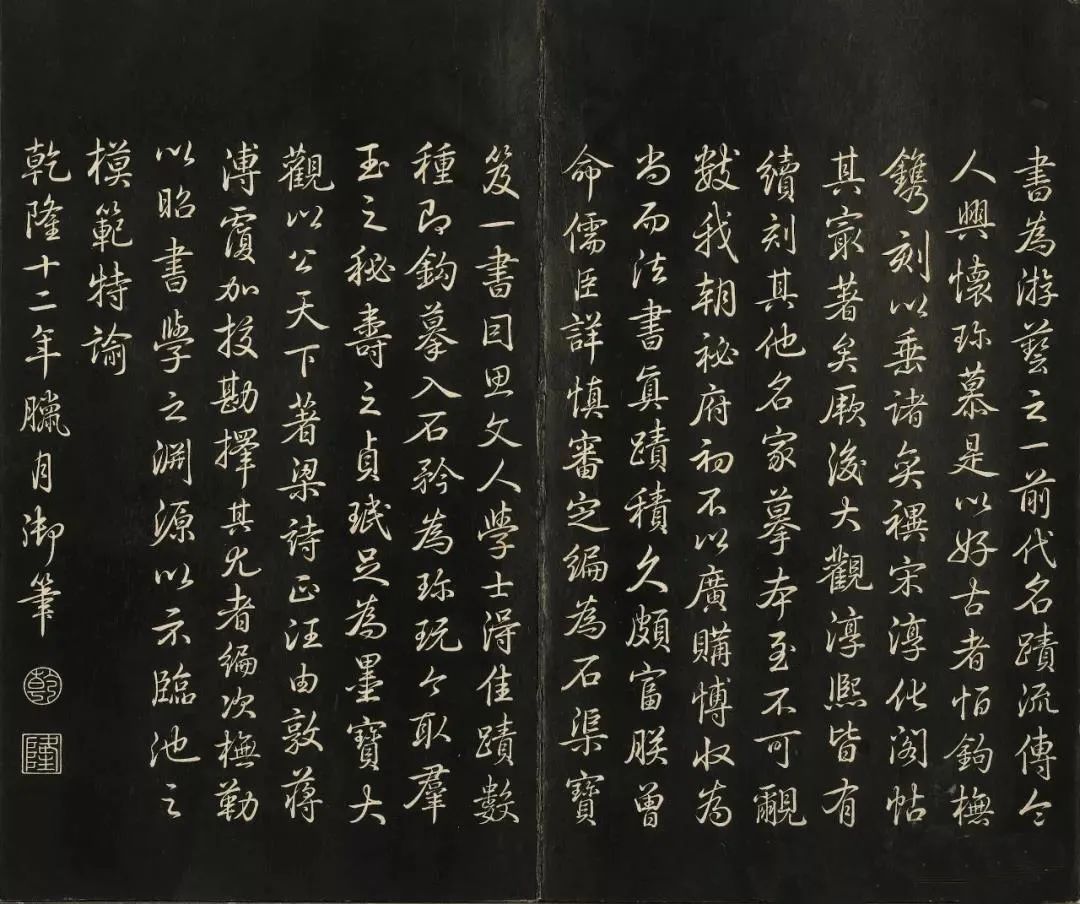 書為游藝之一前代名蹟流傳令
人興懷珎慕是以好古者恒鉤橅
鐫刻以垂諸奕禩宋淳化閣帖
其最著矣厥後大觀淳熙皆有
續刻其他名家摹本至不可覼
數我朝祕府初不以廣購博收為
尚而法書真蹟積久頗富朕曾
命儒臣詳慎審定編為石渠寶
笈一書因思文人學士得佳蹟數
種即鉤摹入石矜為珎玩今取羣
玉之秘壽之貞珉足為墨寶大
觀以公天下著梁詩正汪由敦蔣
溥覆加挍勘擇其尤者編次橅勒
以昭書學之淵源以示臨池之
模範特諭
乾隆十二年臘月御筆
乾
隆